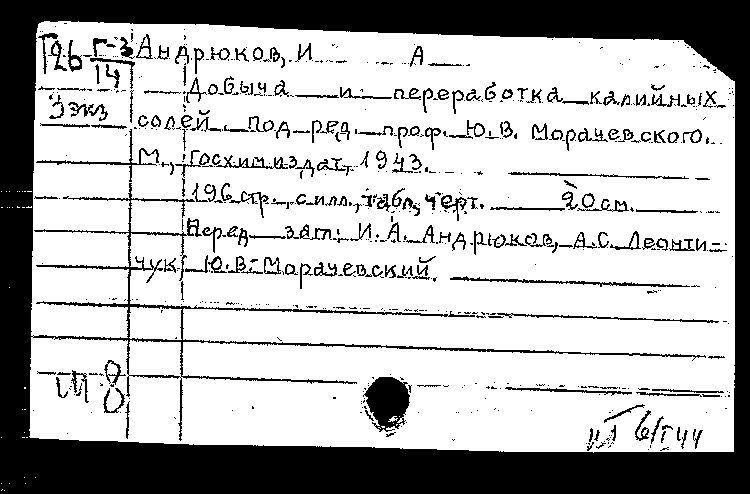 Г26 Г-3/14 Андрюков, И А
Добыча и переработка калийных
3 экз солей. Под ред. проф. Ю.В. Морачевского.
М., Госхимиздат, 1943.
196 стр., с илл., табл, черт. 20 см.
Перед загл: И.А. Андрюков, А.С. Леонти-
чук Ю.В. Морачевский.
ш 8
6/I 44